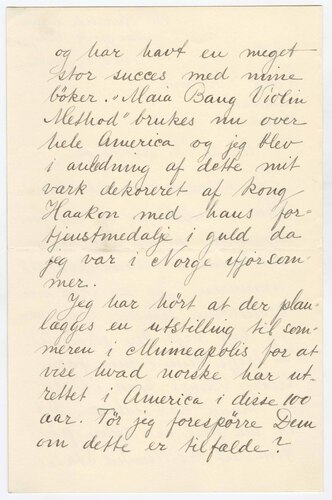 og har havt en meget
stor succes med mine
böker. "Maia Bang Violin
Method" brukes nu over
hele America og jeg blev
i anledning af dette mit
værk dekoreret af kong
Haakon med hans for-
tjenstmedalje i guld da
jeg var i Norge ifjorsom-
mer.
Jeg har hört at der plan-
lægges en utstilling til som-
meren i Minneapolis for at
vise hvad norske har ut-
rettet i America i disse 100
aar. Tör jeg forespörre Dem
om dette er tilfælde?